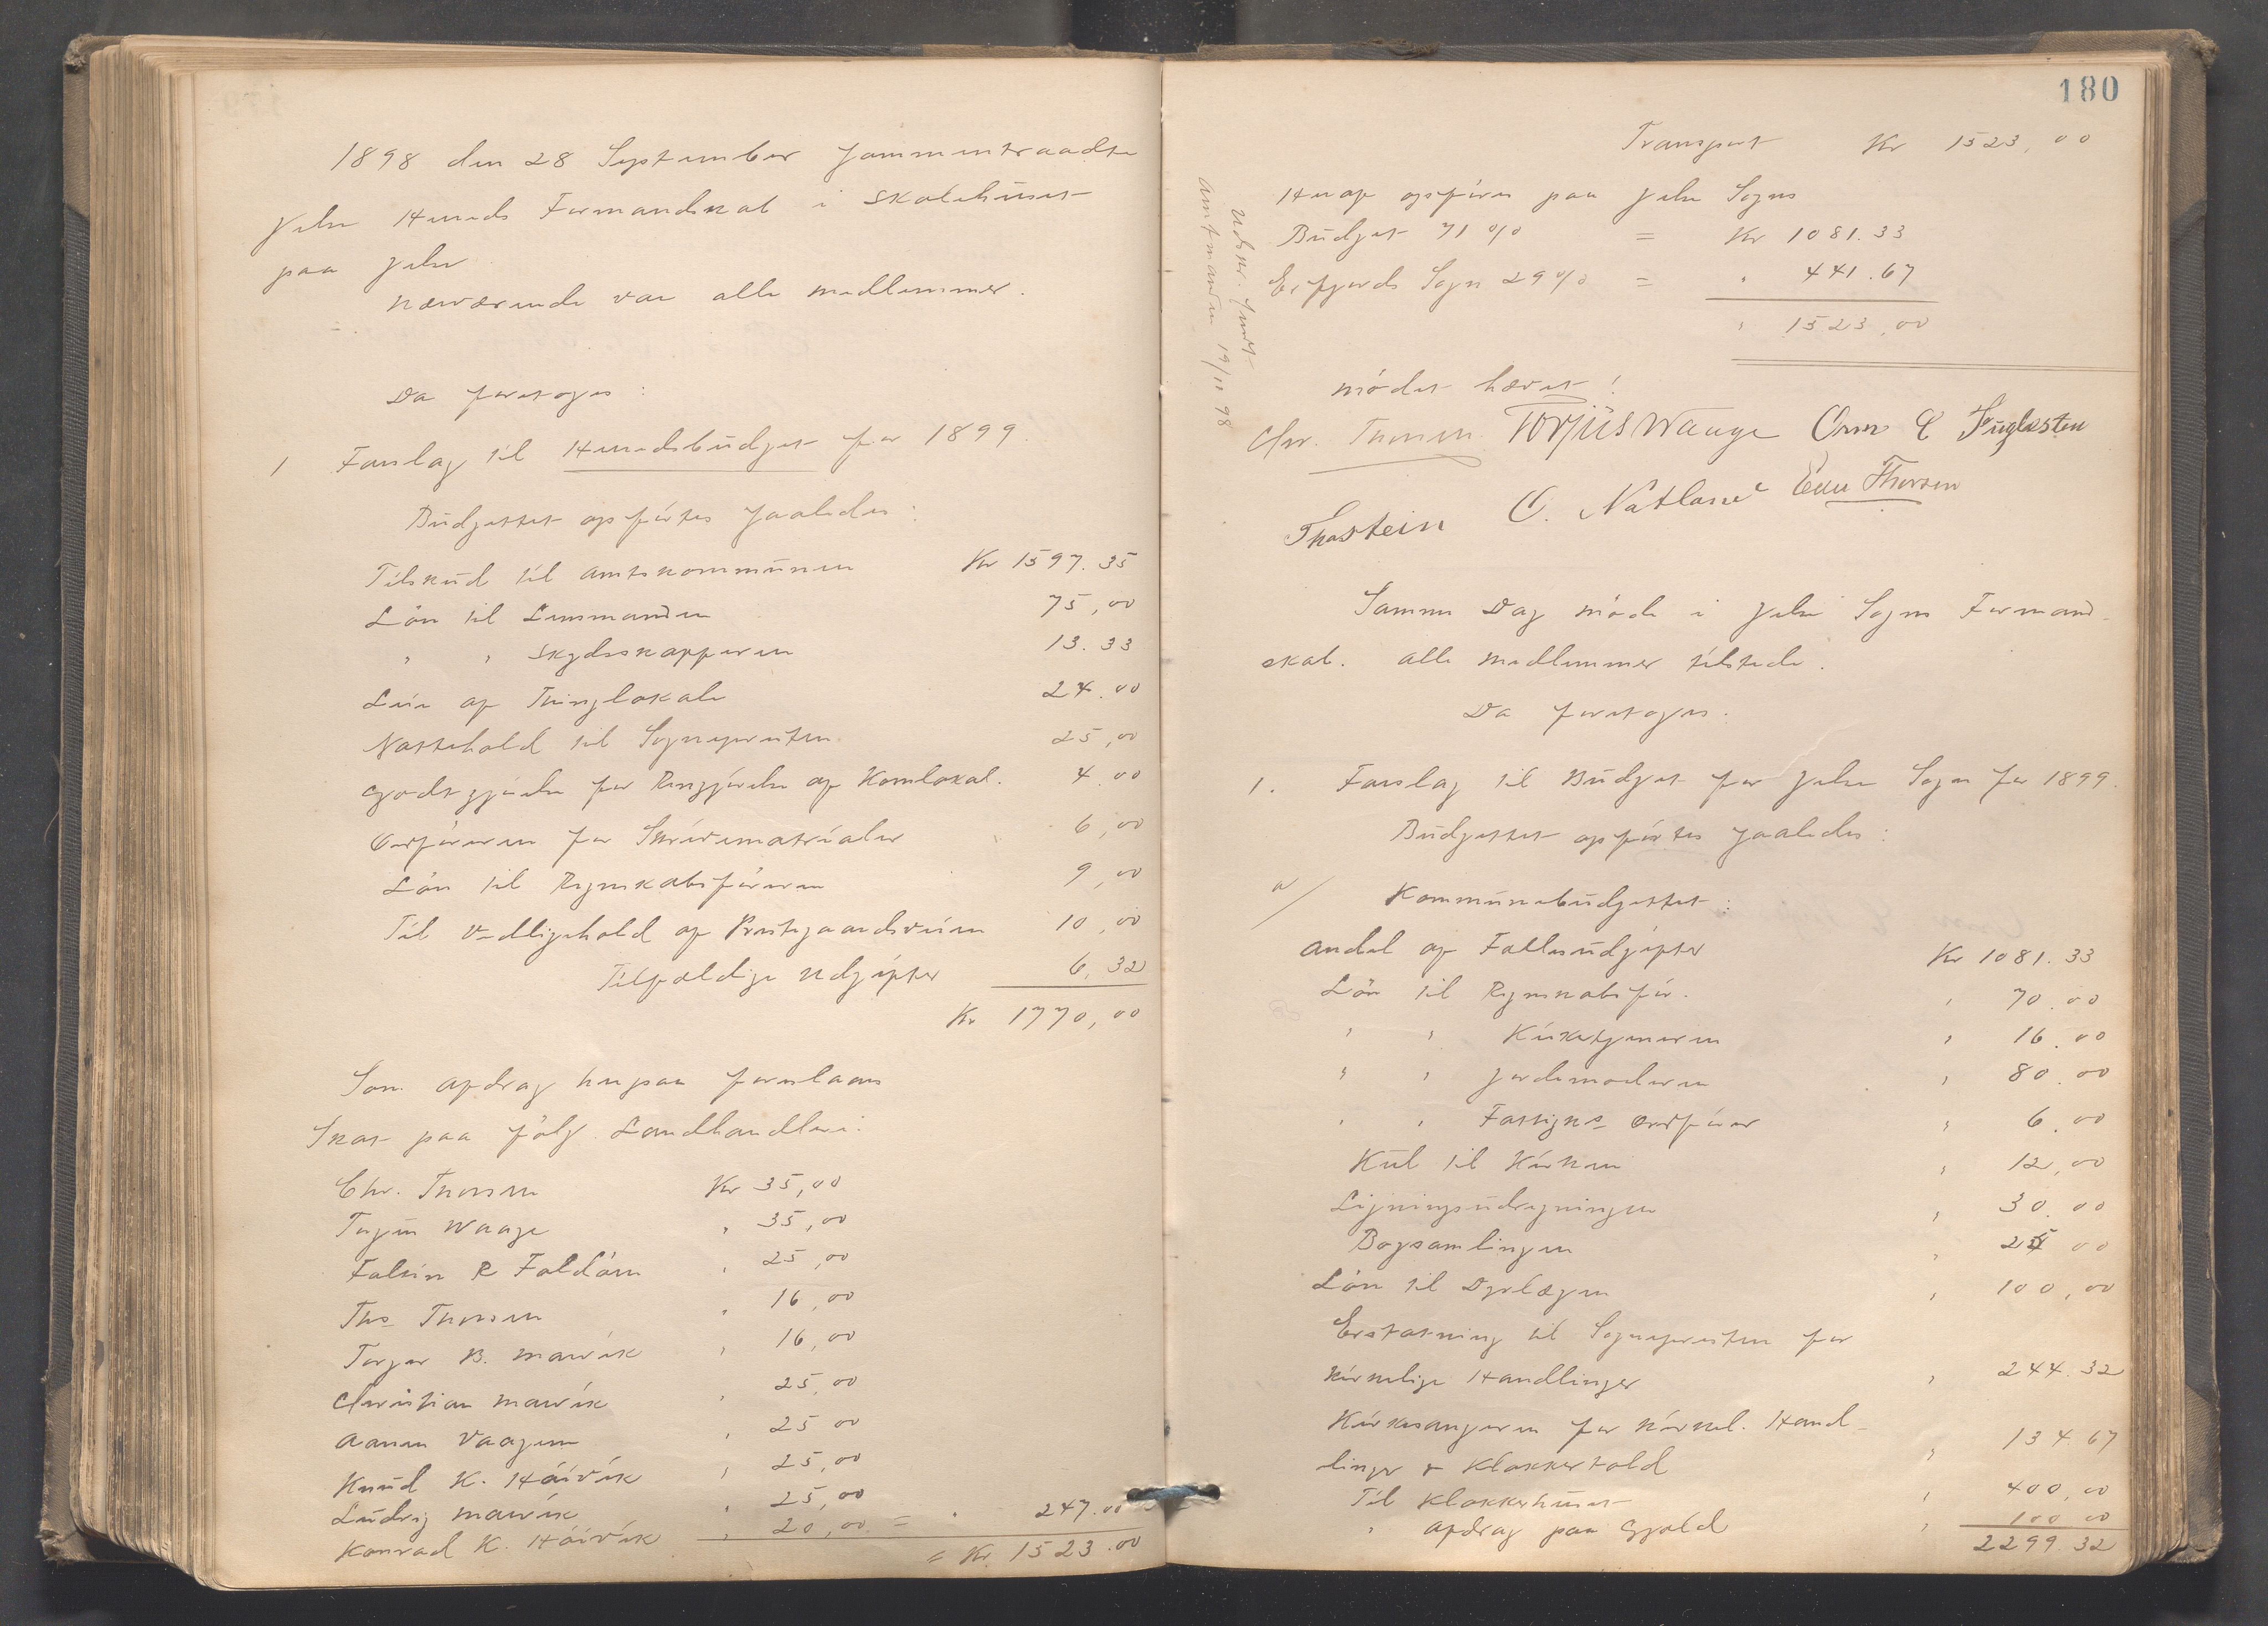 1898 den 28 September sammentraadte
Jelse Herreds Formandskab i Skolehuset
paa Jelse
Nærværende var alle Medlemmer.
Da foretoges:
1 Forslag til Herredsbudget for 1899.
Budgettet opførtes saaledes:
Tilskud til Amtskommunen Kr 1597.35
Løn til Lensmanden 75,00
" " Skydsskafferen 13.33
Leie af Thinglokale 24.00
Nattehold til Sognepresten 25,00
Godtgjørelse for Rengjørelse af Komlokal. 4.00
Ordføreren for Skrivematrialer 6,00
Løn til Regnskabsføreren 9,00
Til Vedligehold af Prestegaardsveien 10,00
Tilfældige Udgifter 6,32
Kr 1770,00
Som Afdrag herpaa foreslaaes
Skat paa følg. Landhandlere:
Chr. Thorsen Kr 35,00
Torjus Waage " 35,00
Falkin R Foldøen " 25,00
Ths Thorsen " 16,00
Torger B. Marvik " 16,00
Christian Marvik " 25,00
Aanen Vaagen " 25,00
Knud K. Høivik " 25,00
Ludvig Marvik " 25,00
Konrad K. Høivik " 20,00 = " 247.00
= Kr. 1523.00
180
Transport Kr 1523,00
Heraf opføres paa Jelse Sogns
Budget 71 % = Kr 1081.33
Erfjords Sogn 29 % = " 441.67
" 1523,00
Udskr. sendt
Amtmanden 19/11 98
Mødet hævet!
Chr. Thorsen Torjus Waage Orm E Fuglesten
Thostein O. Natland Edu Thorsen
Samme Dag møde i Jelse Sogns Formand-
skab. Alle Medlemmer tilstede.
Da foretoges:
1. Forslag til Budget for Jelse Sogn for 1899.
Budgettet opførtes saaledes:
a/ Kommunebudgettet:
Andel af Fællesudgifter Kr 1081.33
Løn til Regnskabsfør. " 70.00
" " Kirketjeneren " 16.00
" " Jordemoderen " 80.00
" " Fattigks Ordfører " 6.00
Kul til Kirken " 12,00
Ligningsudregningen " 30.00
Bogsamlingen " 25 00
Løn til Dyrlægen " 100,00
Erstatning til Sognepresten for
kirkelige Handlinger " 244.32
Kirkesangeren for kirkel. Hand-
linger & Klokkertold " 134.67
Til Klokkerhuset " 400,00
" Afdrag paa Gjæld " 100 00
2299.32